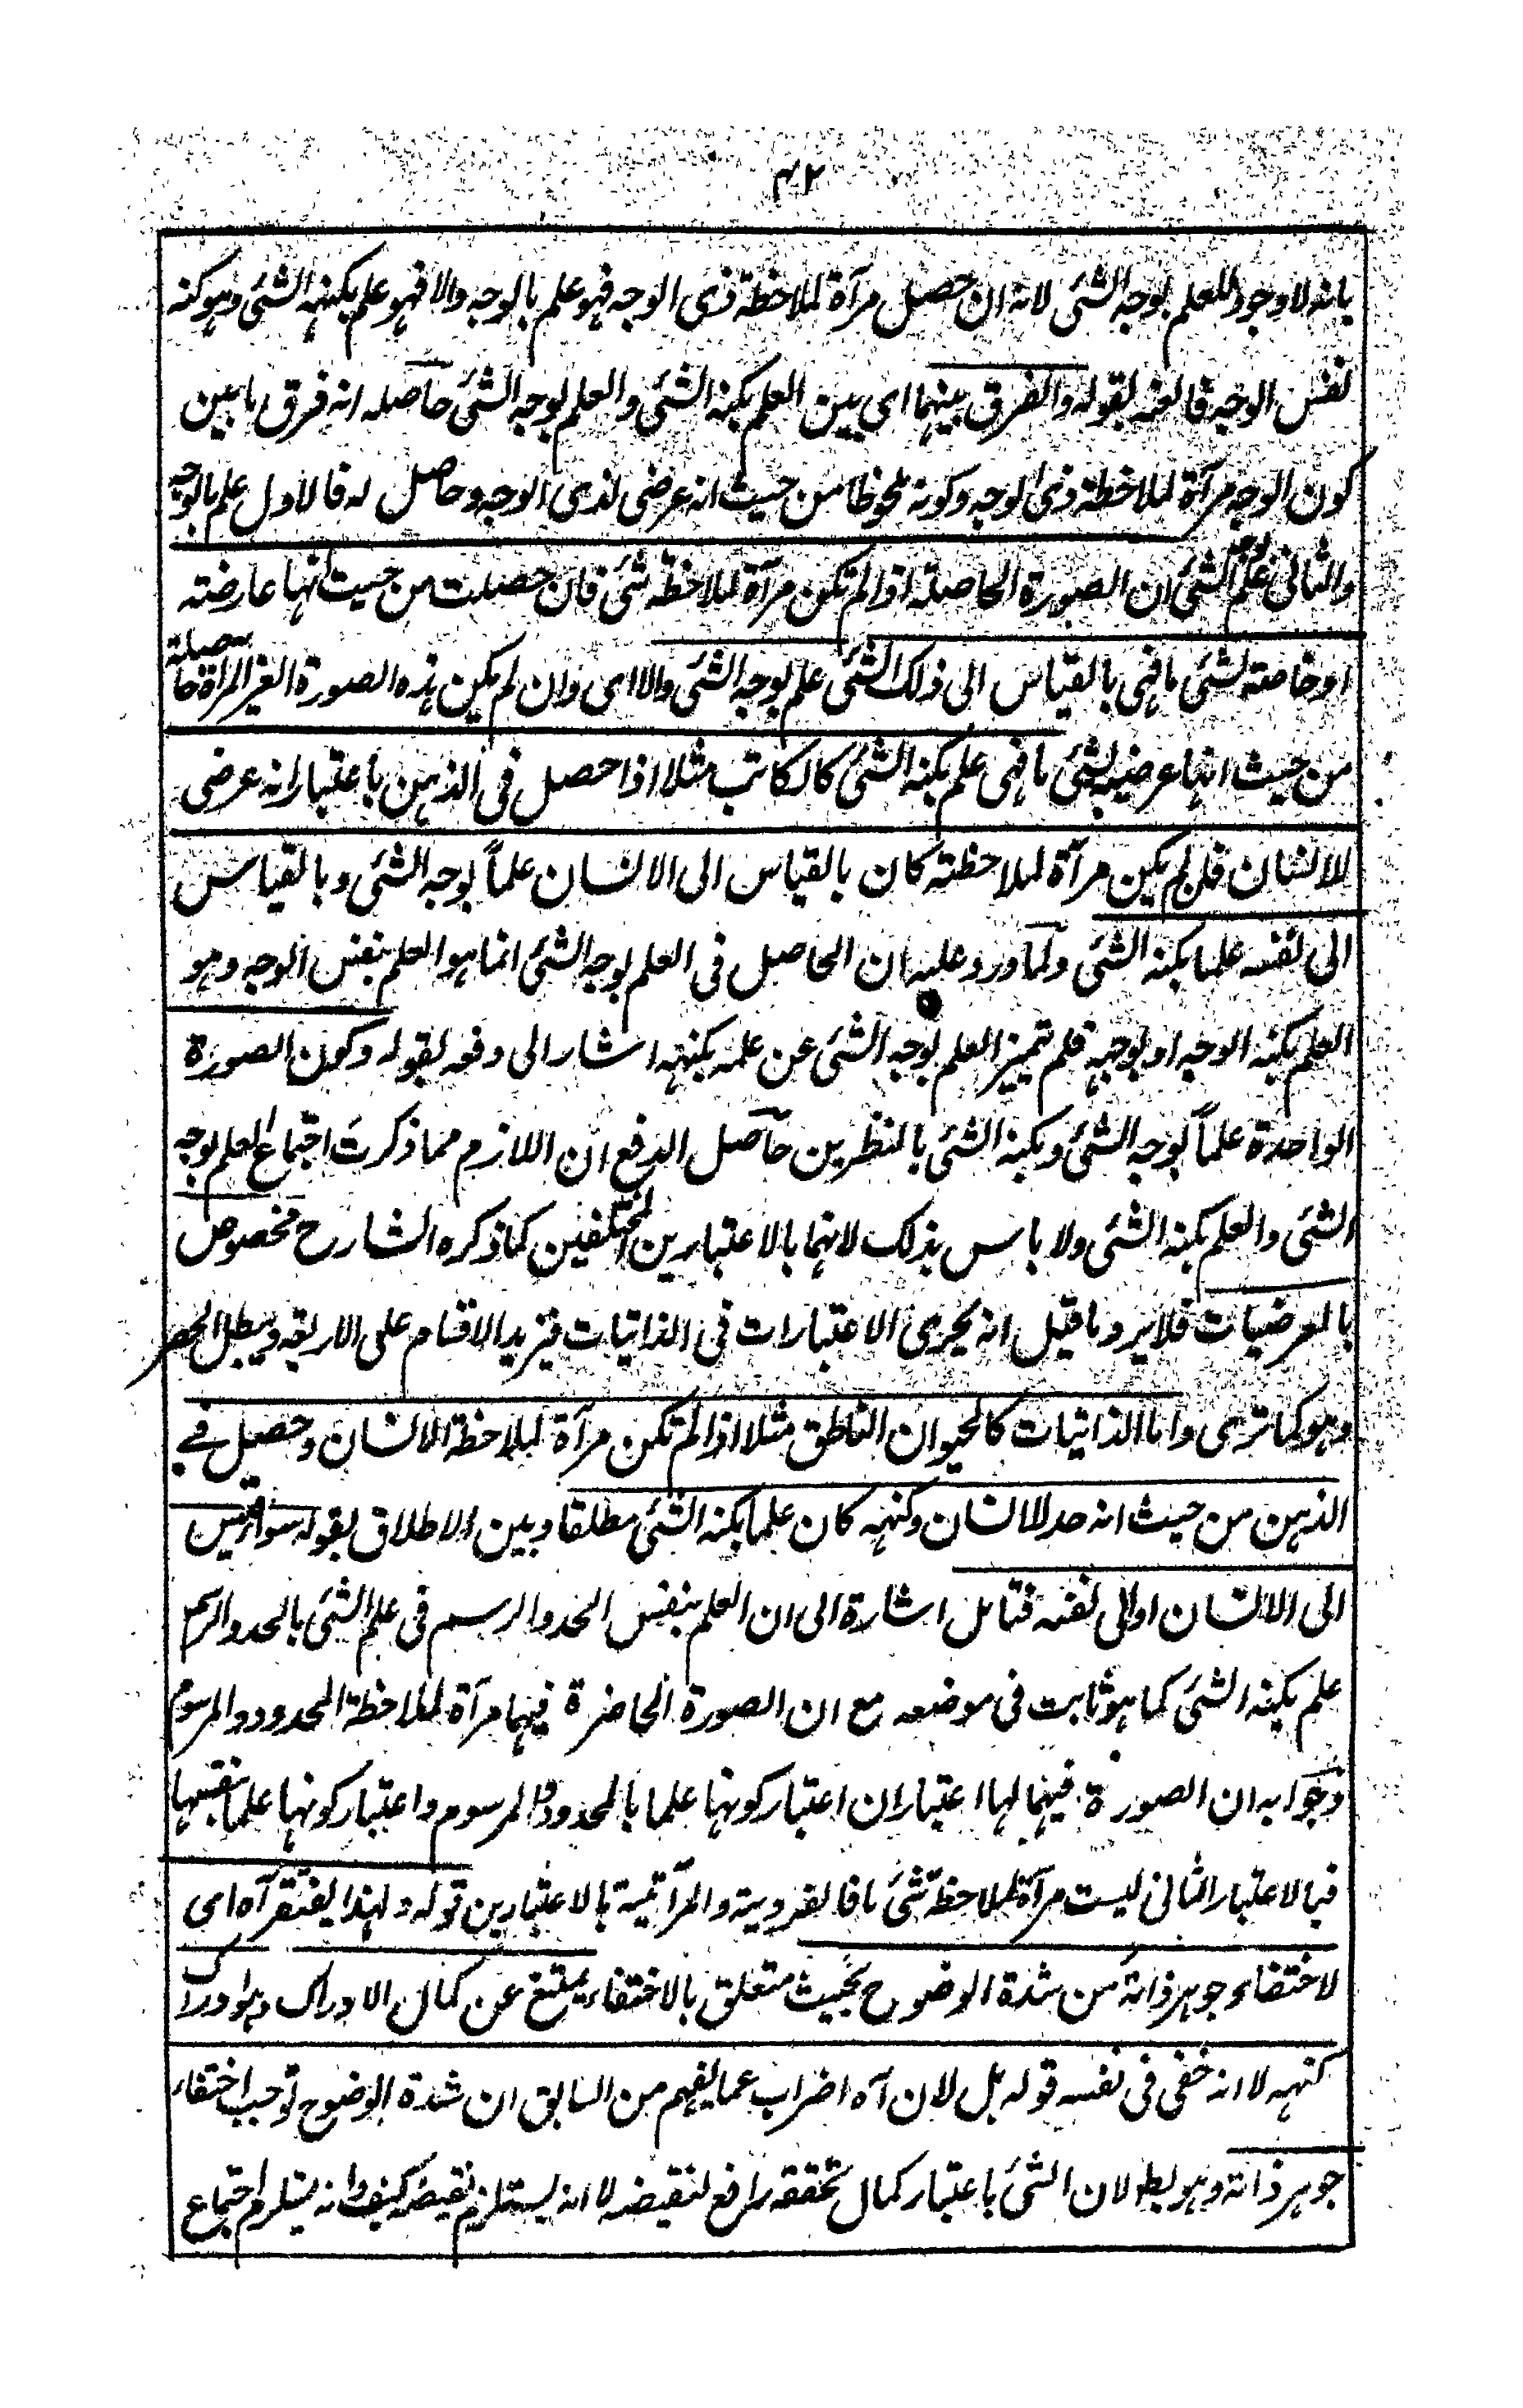 ٤٢
بانه لا وجود للعلم بوجه الشئ لانه ان حصل مرآة لملاحظة ذى الوجه فهو علم بالوجه والا فهو علم بكنهه الشئ وهو كنه
نفس الوجه فالغه لقوله والفرق بينهما اى بين العلم بكنه الشئ والعلم بوجه الشئ حاصله انه فرق ما بين
كون الوجه مرآة لملاحظة ذى الوجه وكونه ملحوظا من حيث انه عرضى لذى الوجه وحاصل له فالاول علم بالوجه
والثانى علم بوجه الشئ ان الصورة الحاصلة اذا لم تكن مرآة لملاحظة شئ فان حصلت من حيث انها عارضته
او خاصته لشئ ما فهى بالقياس الى ذلك الشئ علم بوجه الشئ والا اى وان لم يكن هذه الصورة الغير المرآة حاصلة
من حيث انها عرضية لشئ ما فهى علم بكنه الشئ كالكاتب مثلا اذا حصل فى الذهن باعتبار انه عرضى
للانسان فان لم يكن مرآة لملاحظته كان بالقياس الى الانسان علماً بوجه الشئ وبالقياس
الى نفسه علما بكنه الشئ ولما ورد عليه ان الحاصل فى العلم بوجه الشئ انما هو العلم بنفس الوجه وهو
العلم بكنه الوجه او بوجهه فلم يتميز العلم بوجه الشئ عن علمه بكنهه اشار الى دفعه لقوله وكون الصورة
الواحدة علماً بوجه الشئ وبكنه الشئ بالنظرين حاصل الدفع ان اللازم مما ذكرت اجتماع العلم بوجه
الشئ والعلم بكنه الشئ ولا باس بذلك لانهما بالاعتبارين المختلفين كما ذكره الشارح مخصوص
بالعرضيات فلا يرد ما قيل انه يجرى الاعتبارات فى الذاتيات فيزيد الاقسام على الاربعة ويبطل الحصر
وهو كما ترى واما الذاتيات كالحيوان الناطق مثلا اذا لم تكن مرآة لملاحظة الانسان وحصل فى
الذهن من حيث انه حد للانسان وكنهه كان علما بكنه الشئ مطلقا وبين الاطلاق بقوله سواء قيس
الى الانسان او الى نفسه فتامل اشارة الى ان العلم بنفس الحد والرسم فى علم الشئ بالحد والرسم
علم بكنه الشئ كما هو ثابت فى موضعه مع ان الصورة الحاضرة فيهما مرآة لملاحظة المحدود والمرسوم
وجوابه ان الصورة فيهما لها اعتباران اعتبار كونها علما بالمحدود والمرسوم واعتبار كونها علما بنفسها
فبالاعتبار الثانى ليست مرآة لملاحظة شئ ما فالفردية والمرآتية بالاعتبارين قوله ولهذا يفتقر آه اى
لاختفاء جوهر ذاته من شدة الوضوح بحيث متعلق بالاختفاء يمتنع عن كمال الادراك وهو ادراك
كنهه لا انه خفى فى نفسه قوله بل لان آه اضراب عما يفهم من السابق ان شدة الوضوح توجب اختفاء
جوهر ذاته وهو بط لان الشئ باعتبار كمال تحققه رافع لنقيضه لا انه يستلزم نقيضه كيف وانه يستلزم اجتماع